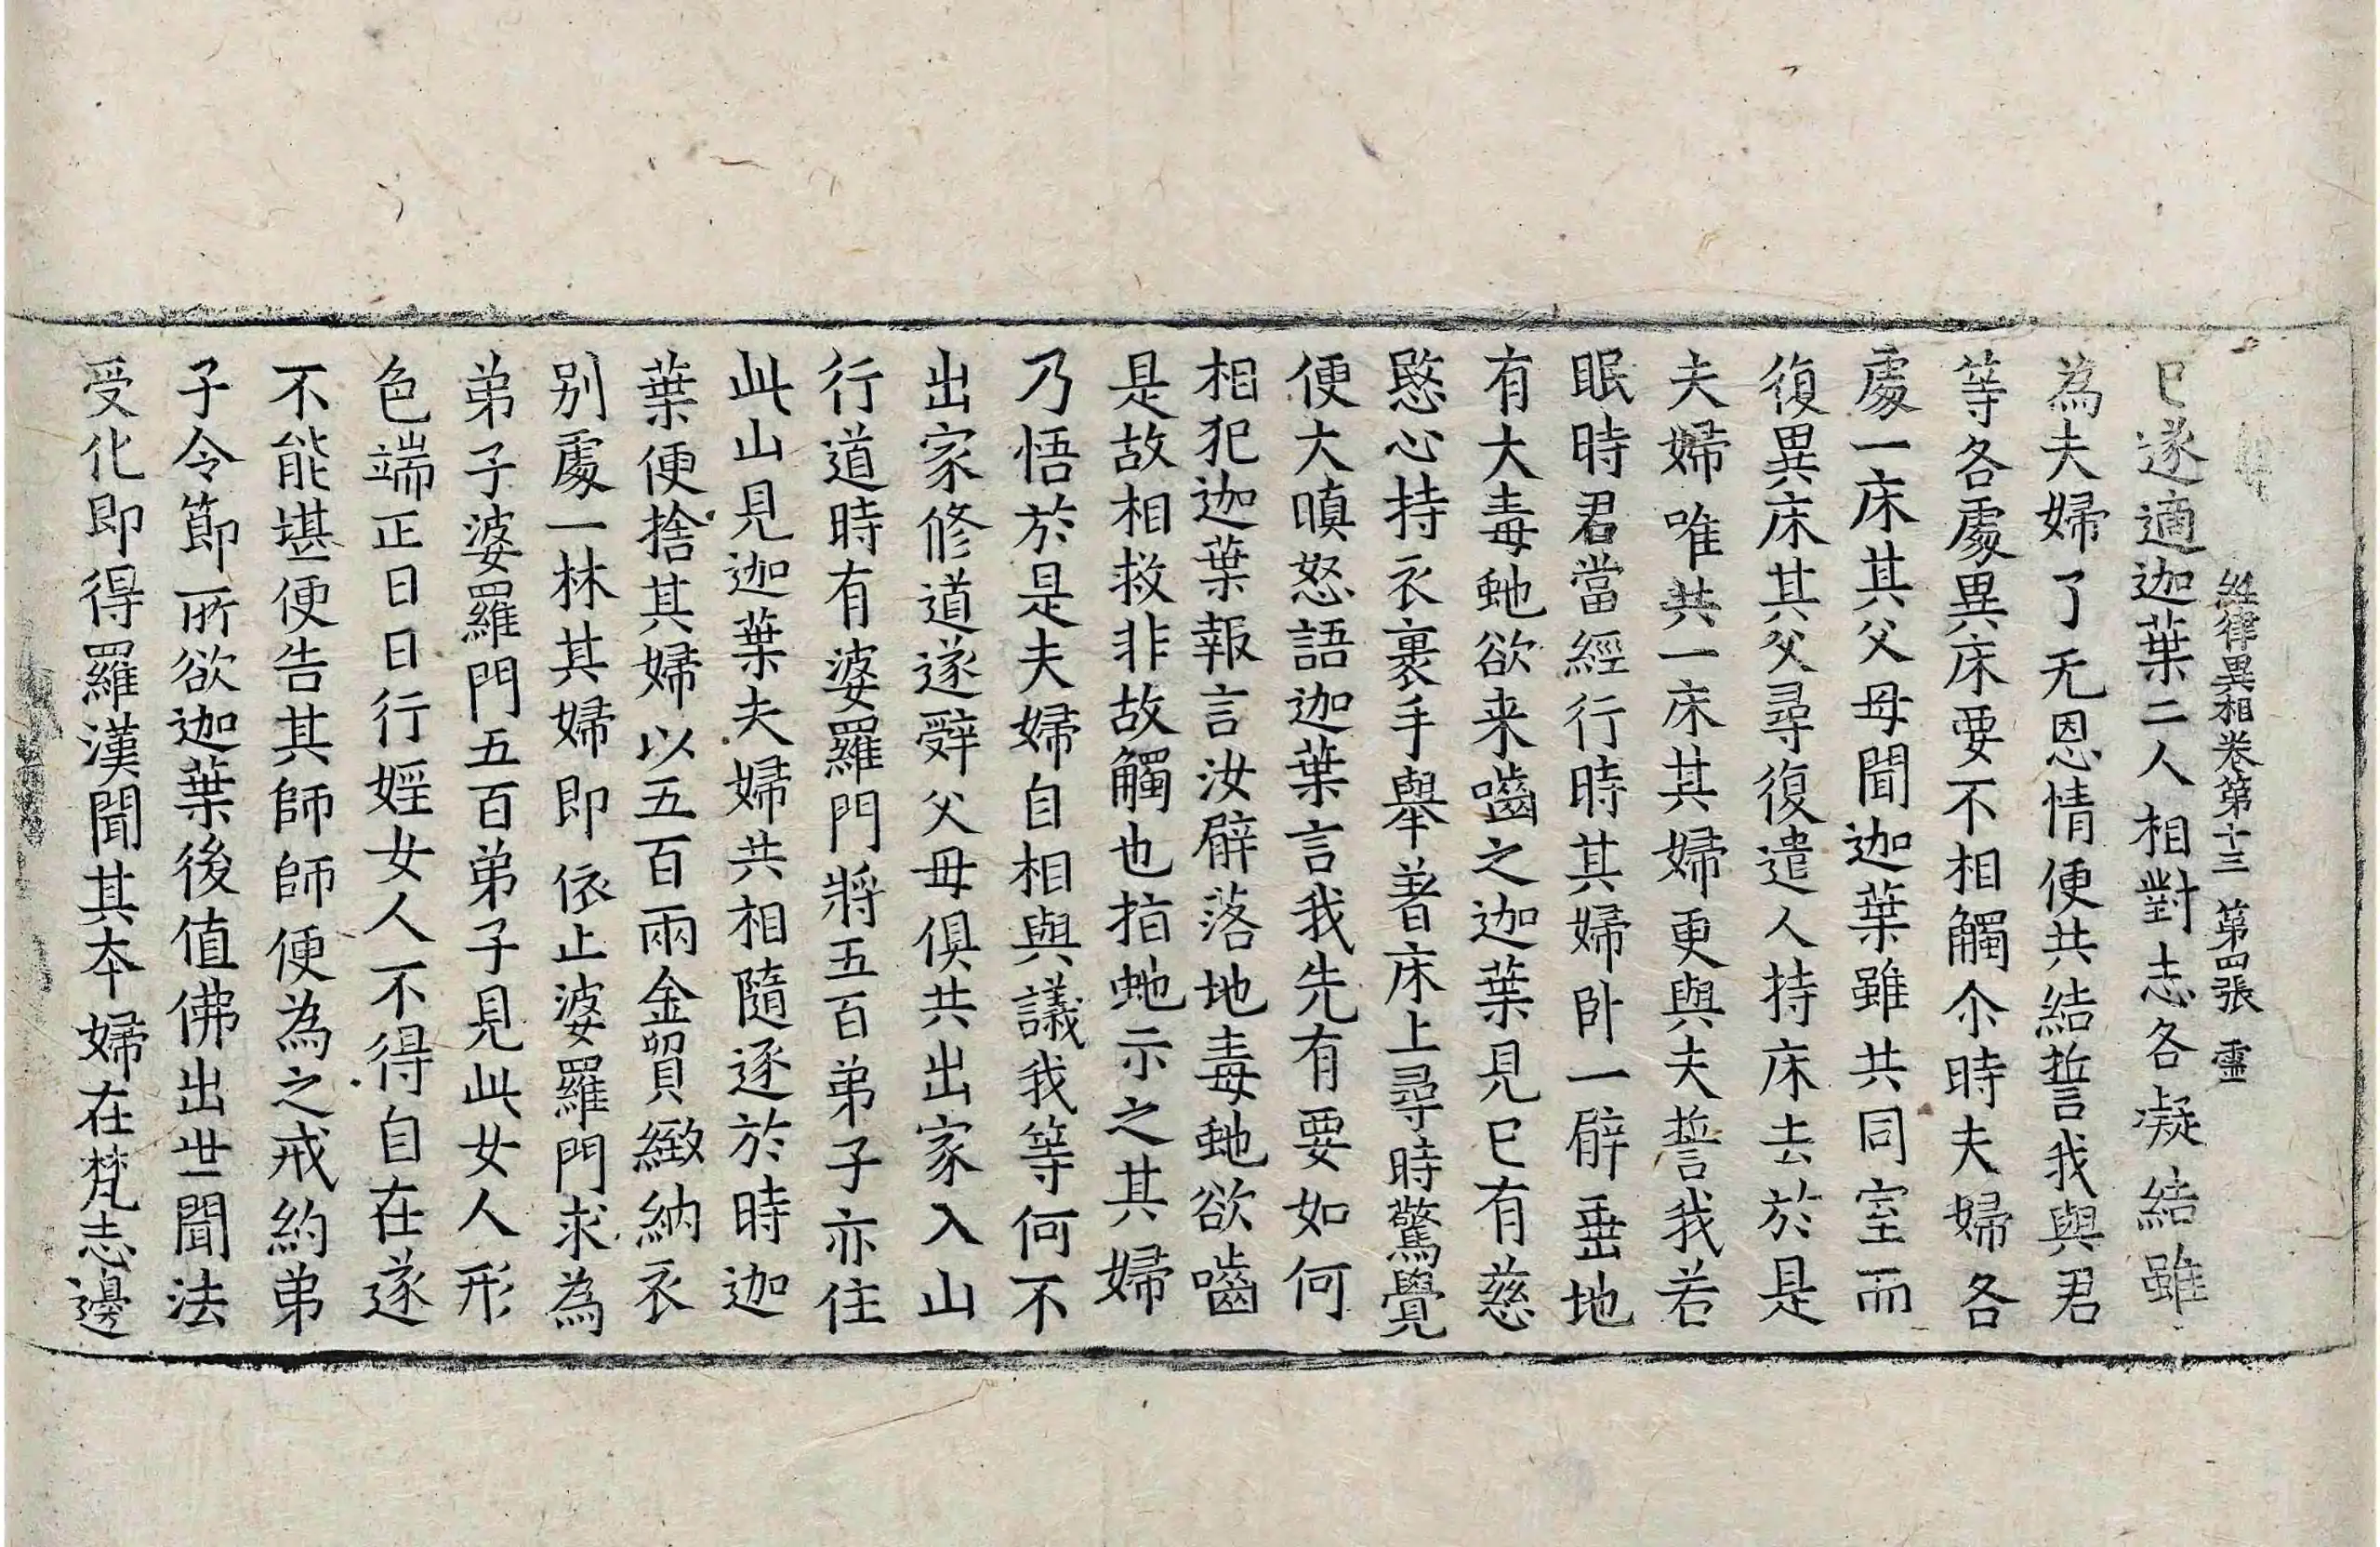 經律異相卷第十三 第四張 靈
巳遂適迦葉二人相對志各凝結雖
為夫婦了无恩情便共結誓我與君
等各處異床要不相觸尒時夫婦各
處一床其父母聞迦葉雖共同室而
復異床其父尋復遣人持床去於是
夫婦唯共一床其婦更與夫誓我若
眠時君當經行時其婦卧一臂垂地
有大毒虵欲来嚙之迦葉見巳有慈
愍心持衣裹手舉著床上尋時驚覺
便大嗔怒語迦葉言我先有要如何
相犯迦葉報言汝臂落地毒虵欲嚙
是故相救非故觸也指虵示之其婦
乃悟於是夫婦自相與議我等何不
出家修道遂辤父母俱共出家入山
行道時有婆羅門將五百弟子亦住
此山見迦葉夫婦共相隨逐於時迦
葉便捨其婦以五百兩金貿緻納衣
別處一林其婦即依止婆羅門求為
弟子婆羅門五百弟子見此女人形
色端正日日行婬女人不得自在遂
不能堪便告其師師便為之戒約弟
子令節所欲迦葉後值佛出世聞法
受化即得羅漢聞其本婦在梵志邊